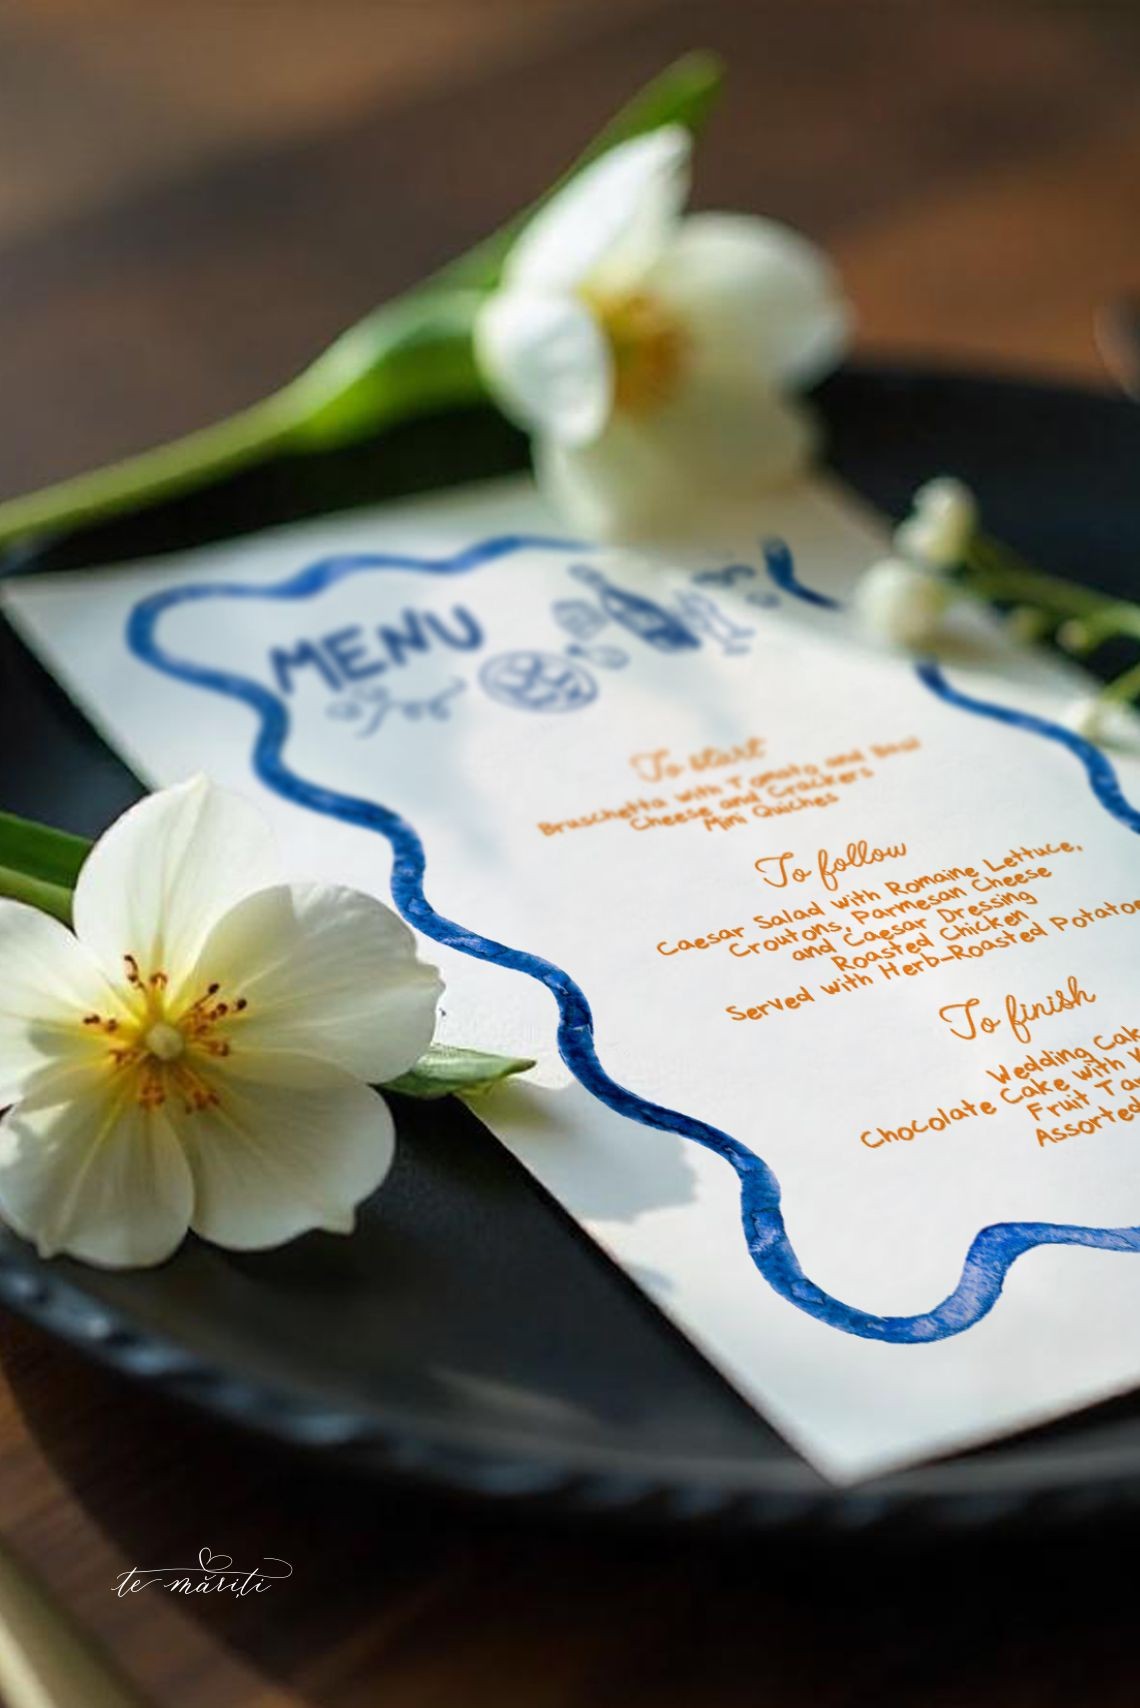 MENU
To start
Bruschetta with Tomato and Basil
Cheese and Crackers
Mini Quiches
To follow
Caesar Salad with Romaine Lettuce,
Croutons, Parmesan Cheese
and Caesar Dressing
Roasted Chicken
Served with Herb-Roasted Potatoe
To finish
Wedding Cak
Chocolate Cake with
Fruit Tar
Assorted
te măriți